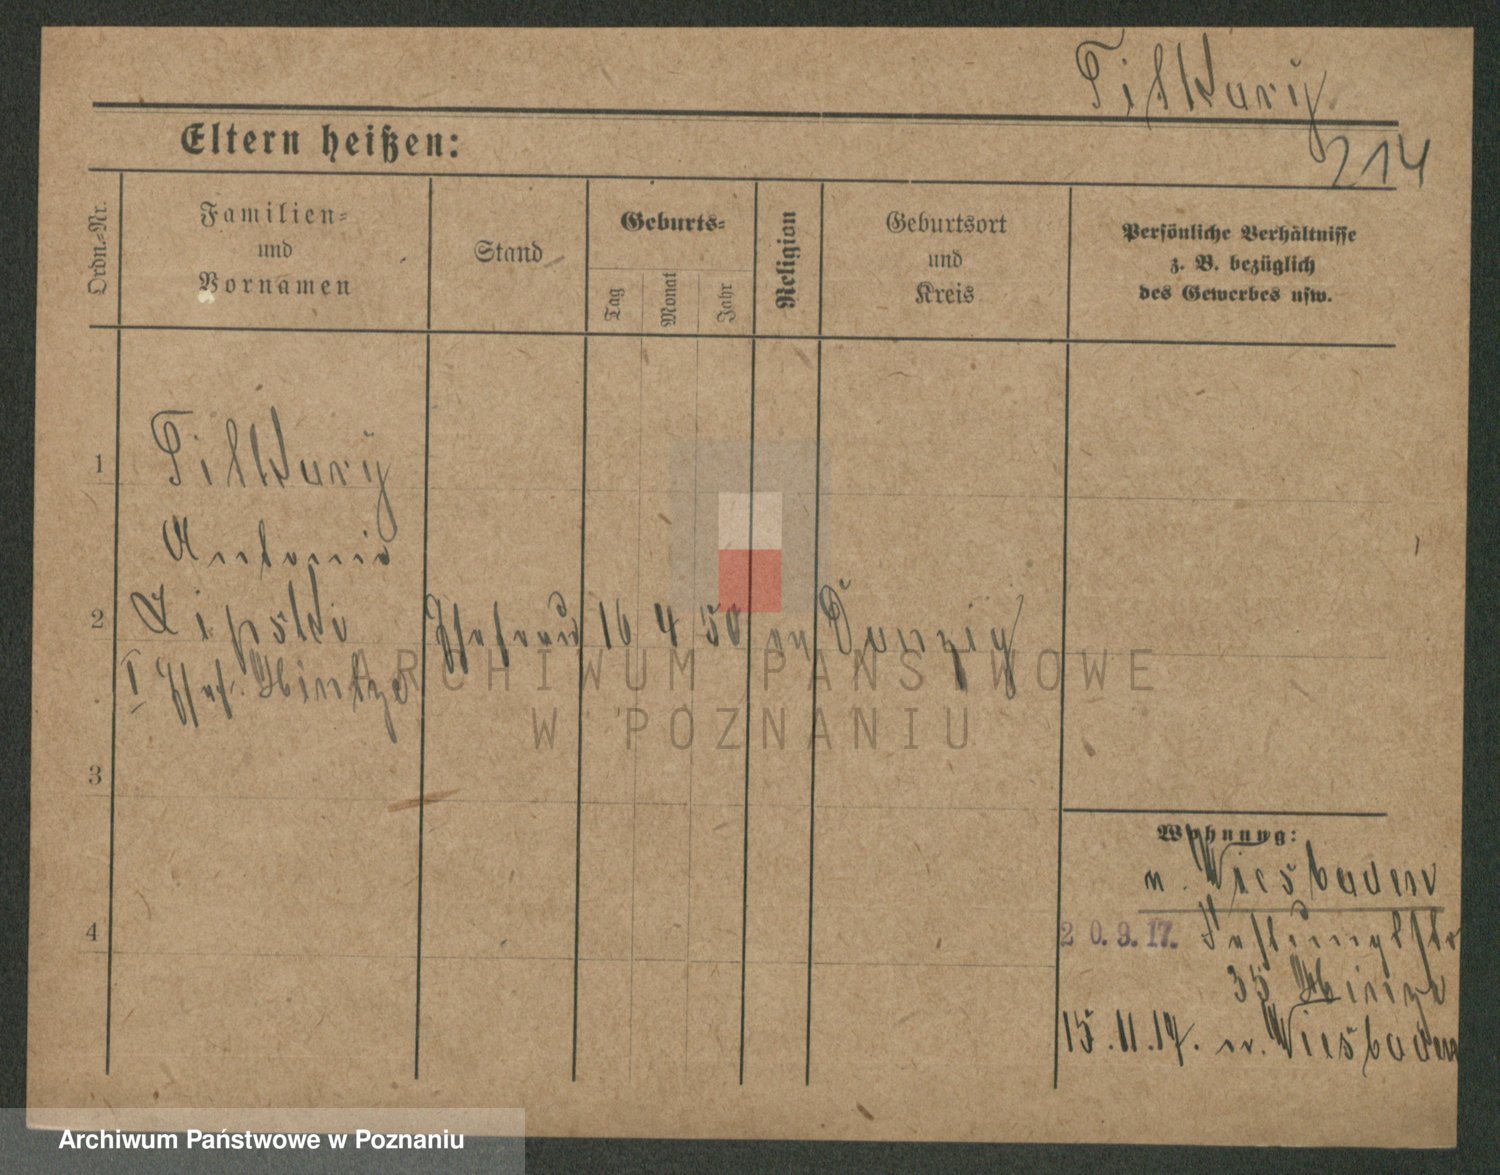 Tilkury
214
Eltern heißen:
Ordn.-Nr.
Familien-
und
Vornamen
Stand
Geburts-
Tag
Monat
Jahr
Religion
Geburtsort
und
Kreis
Persönliche Verhältnisse
z. B. bezüglich
des Gewerbes usw.
1
Tilkury
Antonie
2
Lipski
Ehefrau
16
4
50
ev
Danzig
I Ehef. Hintze
3
Wohnung:
n. Wiesbaden
4
20.9.17.
35 Hinze
15.11.17. n. Wiesbaden
ARCHIWUM PAŃSTWOWE
W POZNANIU
Archiwum Państwowe w Poznaniu